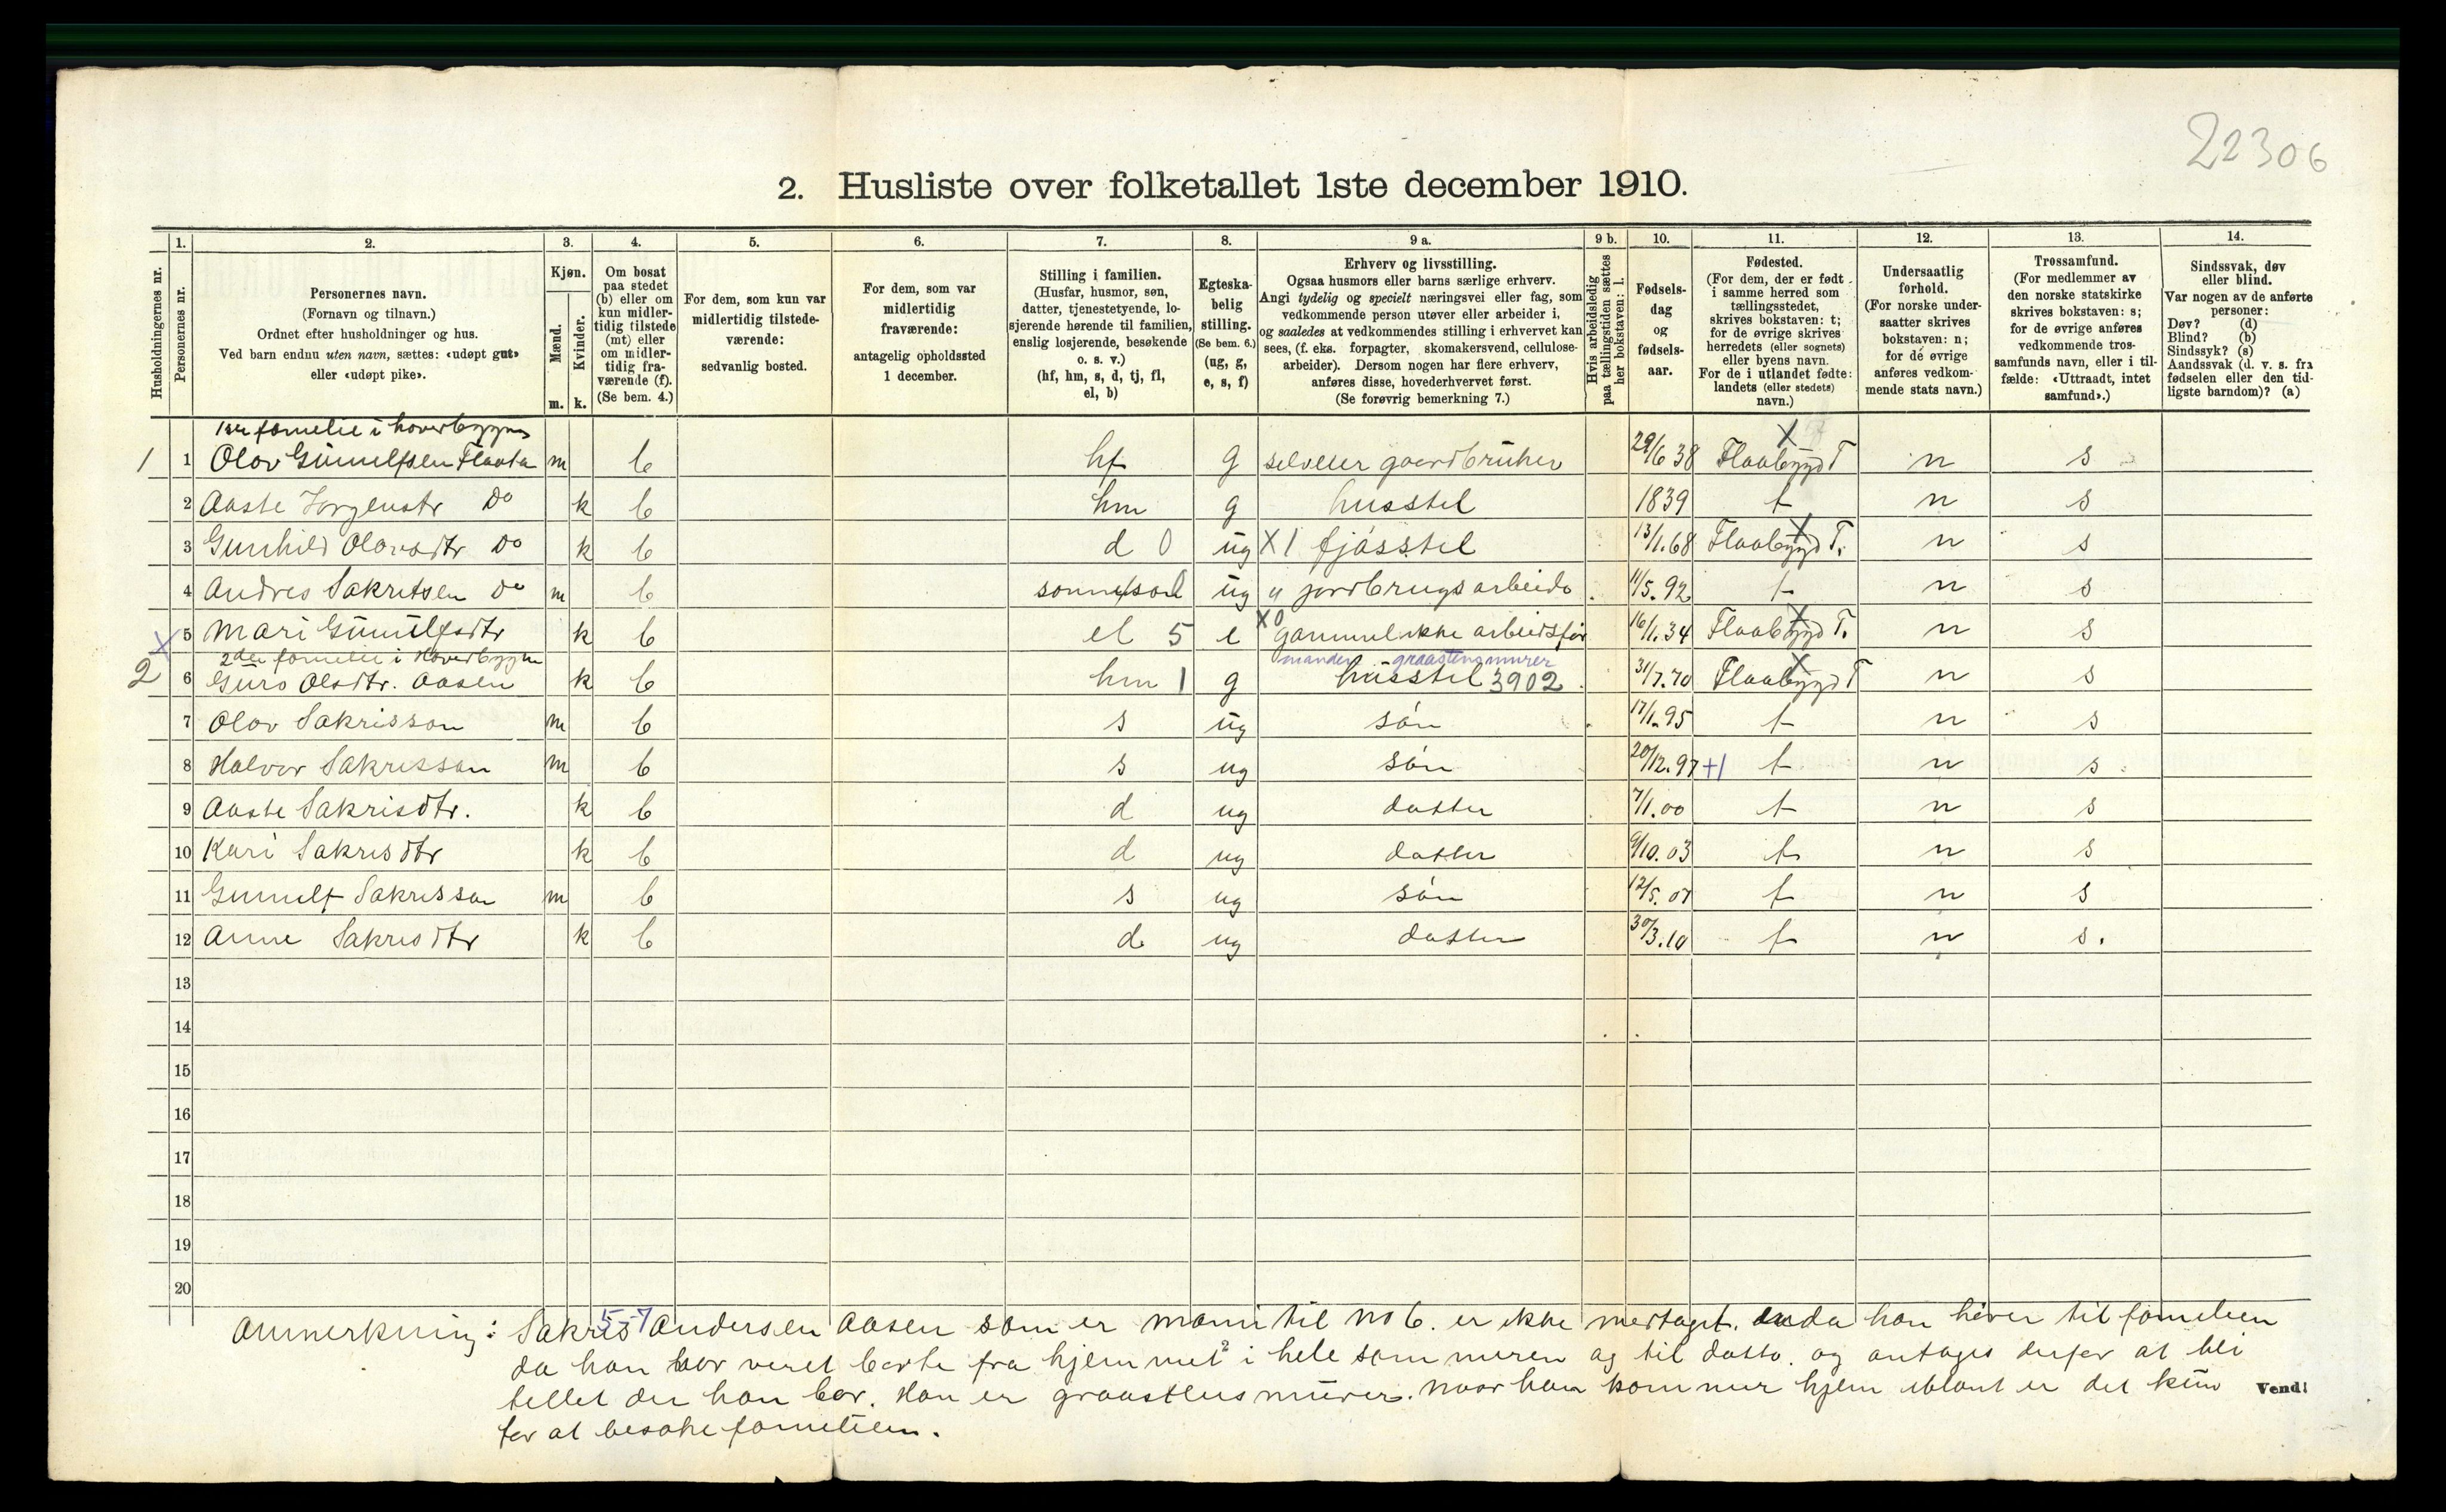 22306
2. Husliste over folketallet 1ste december 1910.
Husholdningernes nr.
1. Personernes nr.
2. Personernes navn. (Fornavn og tilnavn.) Ordnet efter husholdninger og hus. Ved barn endnu uten navn, sættes: «udøpt gut» eller «udøpt pike».
3. Kjøn. Mænd. m. Kvinder. k.
4. Om bosat paa stedet (b) eller om kun midlertidig tilstede (mt) eller om midlertidig fraværende (f). (Se bem. 4.)
5. For dem, som kun var midlertidig tilstedeværende: sedvanlig bosted.
6. For dem, som var midlertidig fraværende: antagelig opholdssted 1 december.
7. Stilling i familien. (Husfar, husmor, søn, datter, tjenestetyende, losjerende hørende til familien, enslig losjerende, besøkende o. s. v.) (hf, hm, s, d, tj, fl, el, b)
8. Egteskabelig stilling. (Se bem. 6.) (ug, g, e, s, f)
9 a. Erhverv og livsstilling. Ogsaa husmors eller barns særlige erhverv. Angi tydelig og specielt næringsvei eller fag, som vedkommende person utøver eller arbeider i, og saaledes at vedkommendes stilling i erhvervet kan sees, (f. eks. forpagter, skomakersvend, cellulosearbeider). Dersom nogen har flere erhverv, anføres disse, hovederhvervet først. (Se forøvrig bemerkning 7.)
9 b. Hvis arbeidsledig paa tællingstiden sættes her bokstaven: l.
10. Fødselsdag og fødselsaar.
11. Fødested. (For dem, der er født i samme herred som tællingsstedet, skrives bokstaven: t; for de øvrige skrives herredets (eller sognets) eller byens navn. For de i utlandet fødte: landets (eller stedets) navn.)
12. Undersaatlig forhold. (For norske undersaatter skrives bokstaven: n; for de øvrige anføres vedkommende stats navn.)
13. Trossamfund. (For medlemmer av den norske statskirke skrives bokstaven: s; for de øvrige anføres vedkommende trossamfunds navn, eller i tilfælde: «Uttraadt, intet samfund».)
14. Sindssvak, døv eller blind. Var nogen av de anførte personer: Døv? (d) Blind? (b) Sindssyk? (s) Aandssvak (d. v. s. fra fødselen eller den tidligste barndom)? (a)
1ste famelie i hoverbygn
1 1 Olav Gunulfsen Flaata m b hf g selveier gaardbruker 29/6 38 Flaabygd T X n s
2 Aaste Jorgenstr Do k b hm g husstel 1839 t n s
3 Gunhild Olavsdtr Do k b d 0 ug X 1 fjøsstel 13/1.68 Flaabygd T. X n s
4 Andres Sakritsen Do m b sonneson ug jordbrugsarbeide 11/5.92 t n s
X 5 Mari Gunulfsdtr k b el 5 e X0 gammel ikke arbeidsfør 16/1.34 Flaabygd T. X n s
2den famelie i Hoverbygn manden graastensmurer
2 6 Guro Olsdtr. Aasen k b hm 1 g husstel 3902 31/7.70 Flaabygd T X n s
7 Olav Sakrisson m b s ug søn 17/1.95 t n s
8 Halvor Sakrisson m b s ug søn 20/12.97 +1 t n s
9 Aaste Sakrisdtr. k b d ug datter 7/1.00 t n s
10 Kari Sakrisdtr k b d ug datter 9/10.03 t n s
11 Gunulf Sakrisson m b s ug søn 12/5.07 t n s
12 Anne Sakrisdtr k b d ug datter 30/3.10 t n s.
13
14
15
16
17
18
19
20
5-7
Anmerkning: Sakris Andersen Aasen som er mann til no 6. er ikke medtaget. enda han hører til famelien
da han har veret borte fra hjemmet i hele sommeren og til datto. og antages derfor at bli
tellet der han bor. Han er graastensmurer. Naar han kommer hjem iblant er det kun
for at besøke famelien.
Vend!